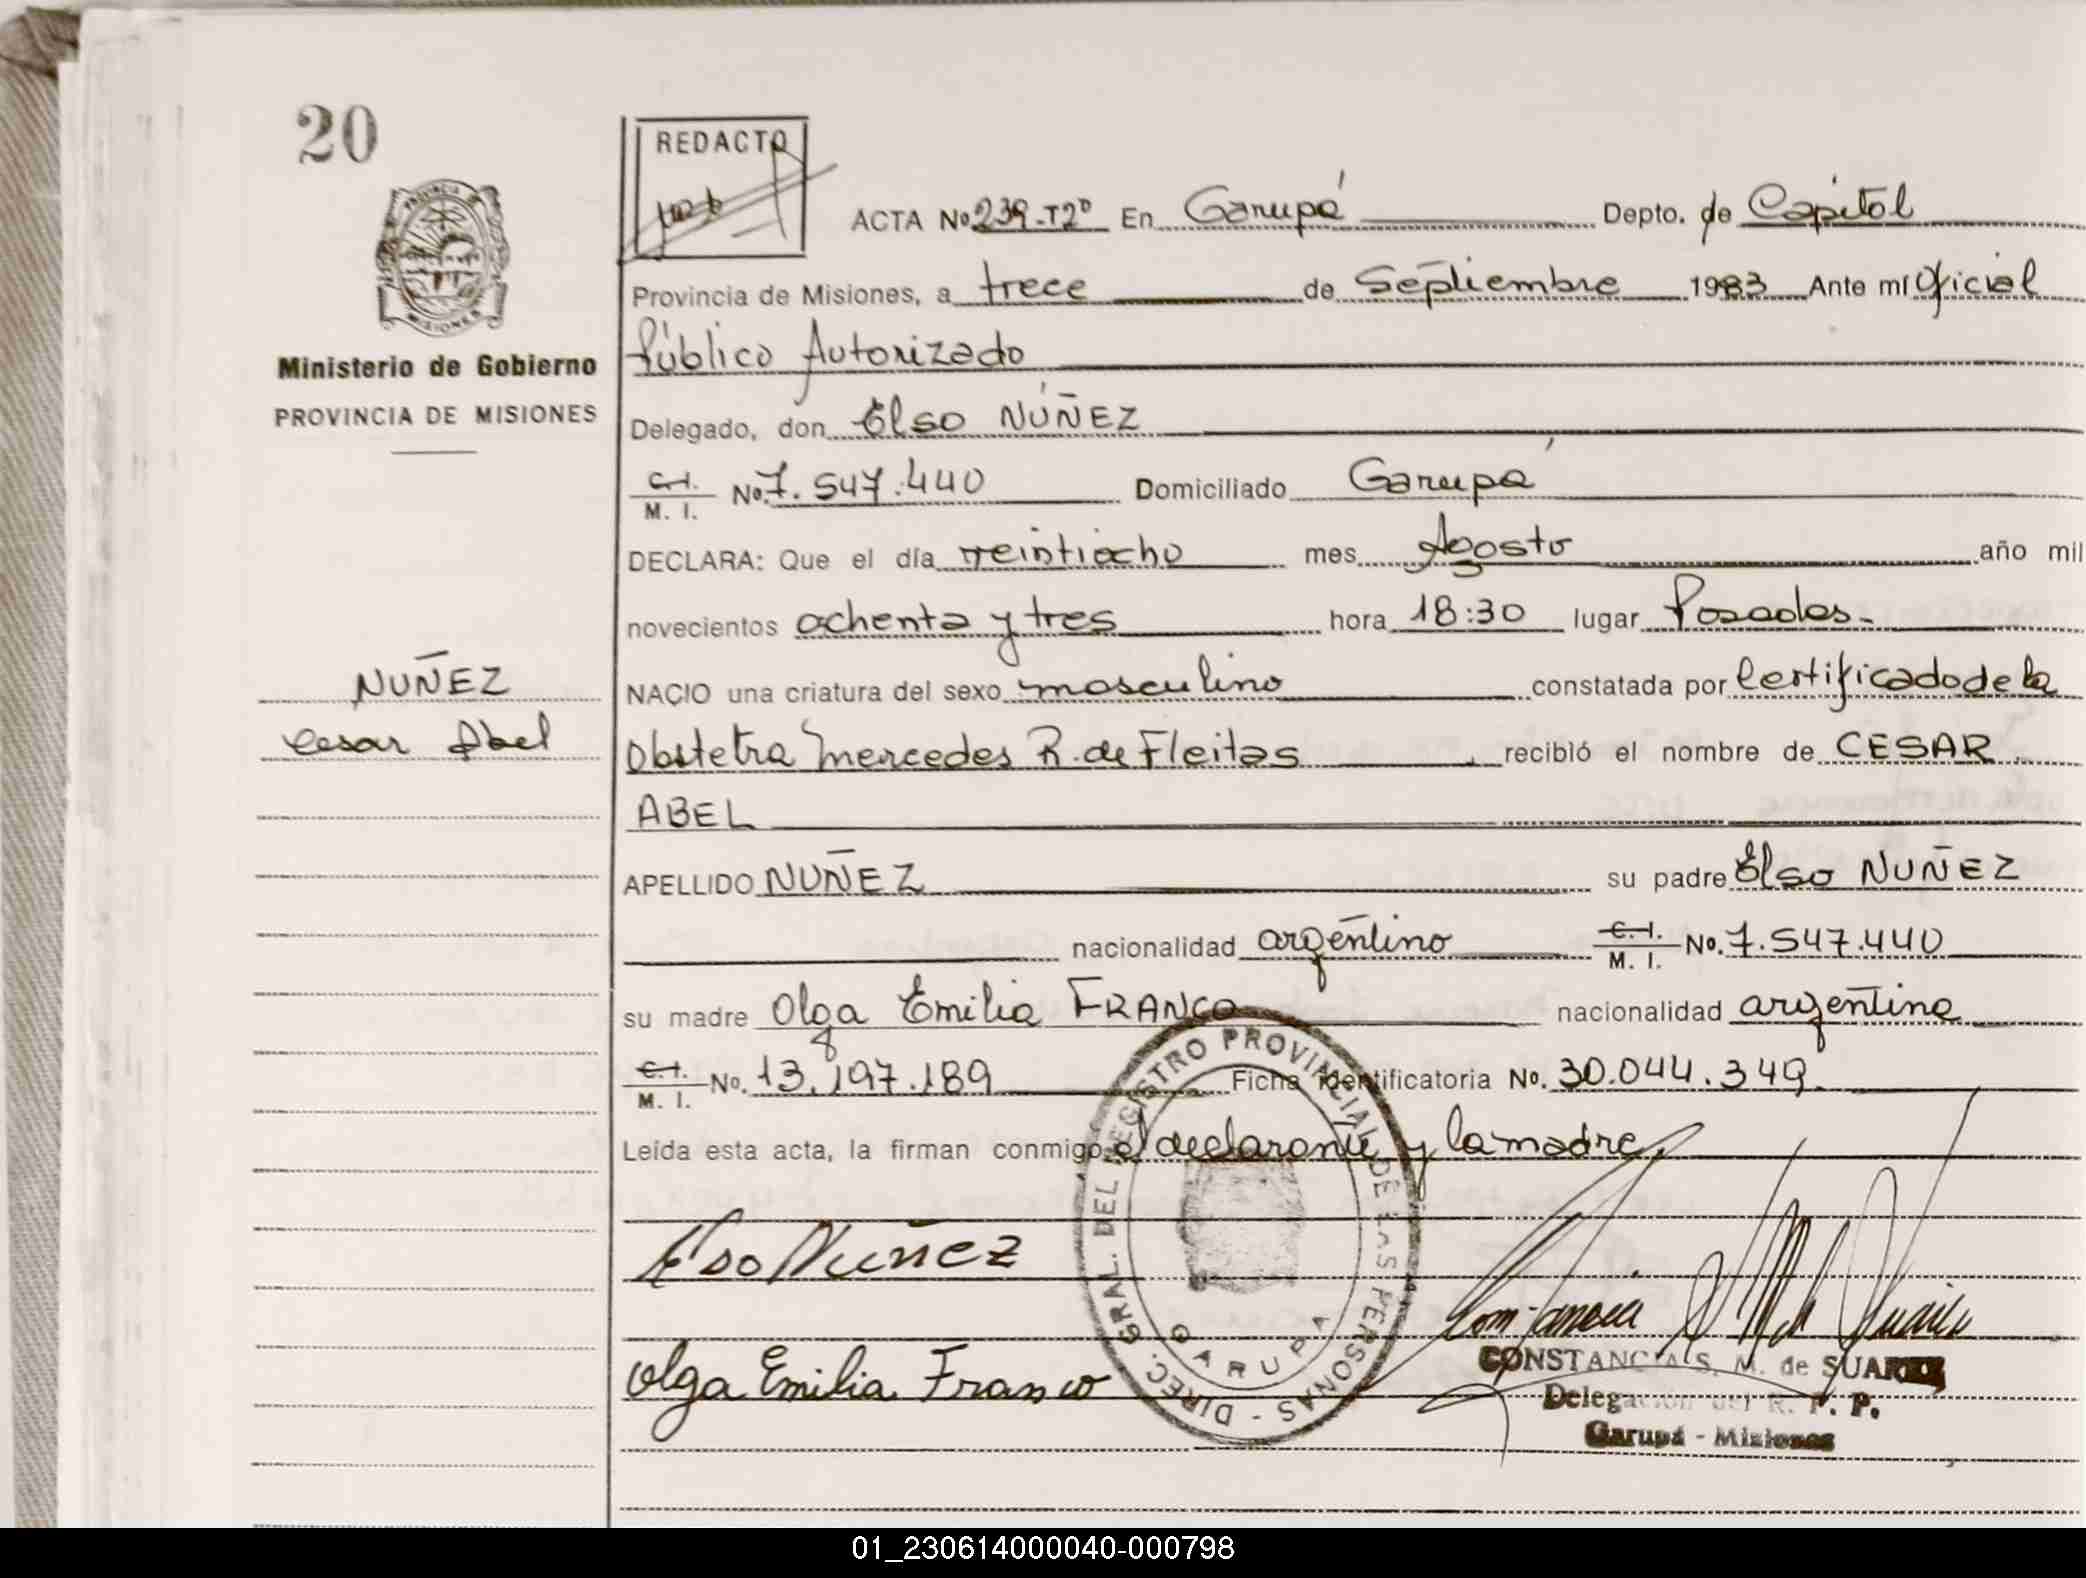 20
REDACTO
ACTA No 239-T2º En Garupá Depto. de Capital
Provincia de Misiones, a trece de Septiembre 1983 Ante mí Oficial
Ministerio de Gobierno
PROVINCIA DE MISIONES
Público Autorizado
Delegado, don Elso NÚÑEZ
C.I. M. I. No. 7.547.440 Domiciliado Garupá
DECLARA: Que el día veintiocho mes Agosto año mil
novecientos ochenta y tres hora 18:30 lugar Posadas.-
NUÑEZ
Cesar Abel
NACIO una criatura del sexo masculino constatada por Certificado de la
Obstetra Mercedes R. de Fleitas, recibió el nombre de CESAR
ABEL
APELLIDO NUÑEZ su padre Elso NUÑEZ
nacionalidad argentino C.I. M. I. No. 7.547.440
su madre Olga Emilia FRANCO nacionalidad argentina
C.I. M. I. No. 13.197.189 Ficha identificatoria No. 30.044.349.
Leída esta acta, la firman conmigo el declarante y la madre.
DIREC. GRAL. DEL REGISTRO PROVINCIAL DE LAS PERSONAS - GARUPA
Elso Nuñez
Olga Emilia Franco
CONSTANCIA S. M. de SUAREZ
Delegación del R. P. P.
Garupá - Misiones
PROVINCIA DE MISIONES
01_230614000040-000798